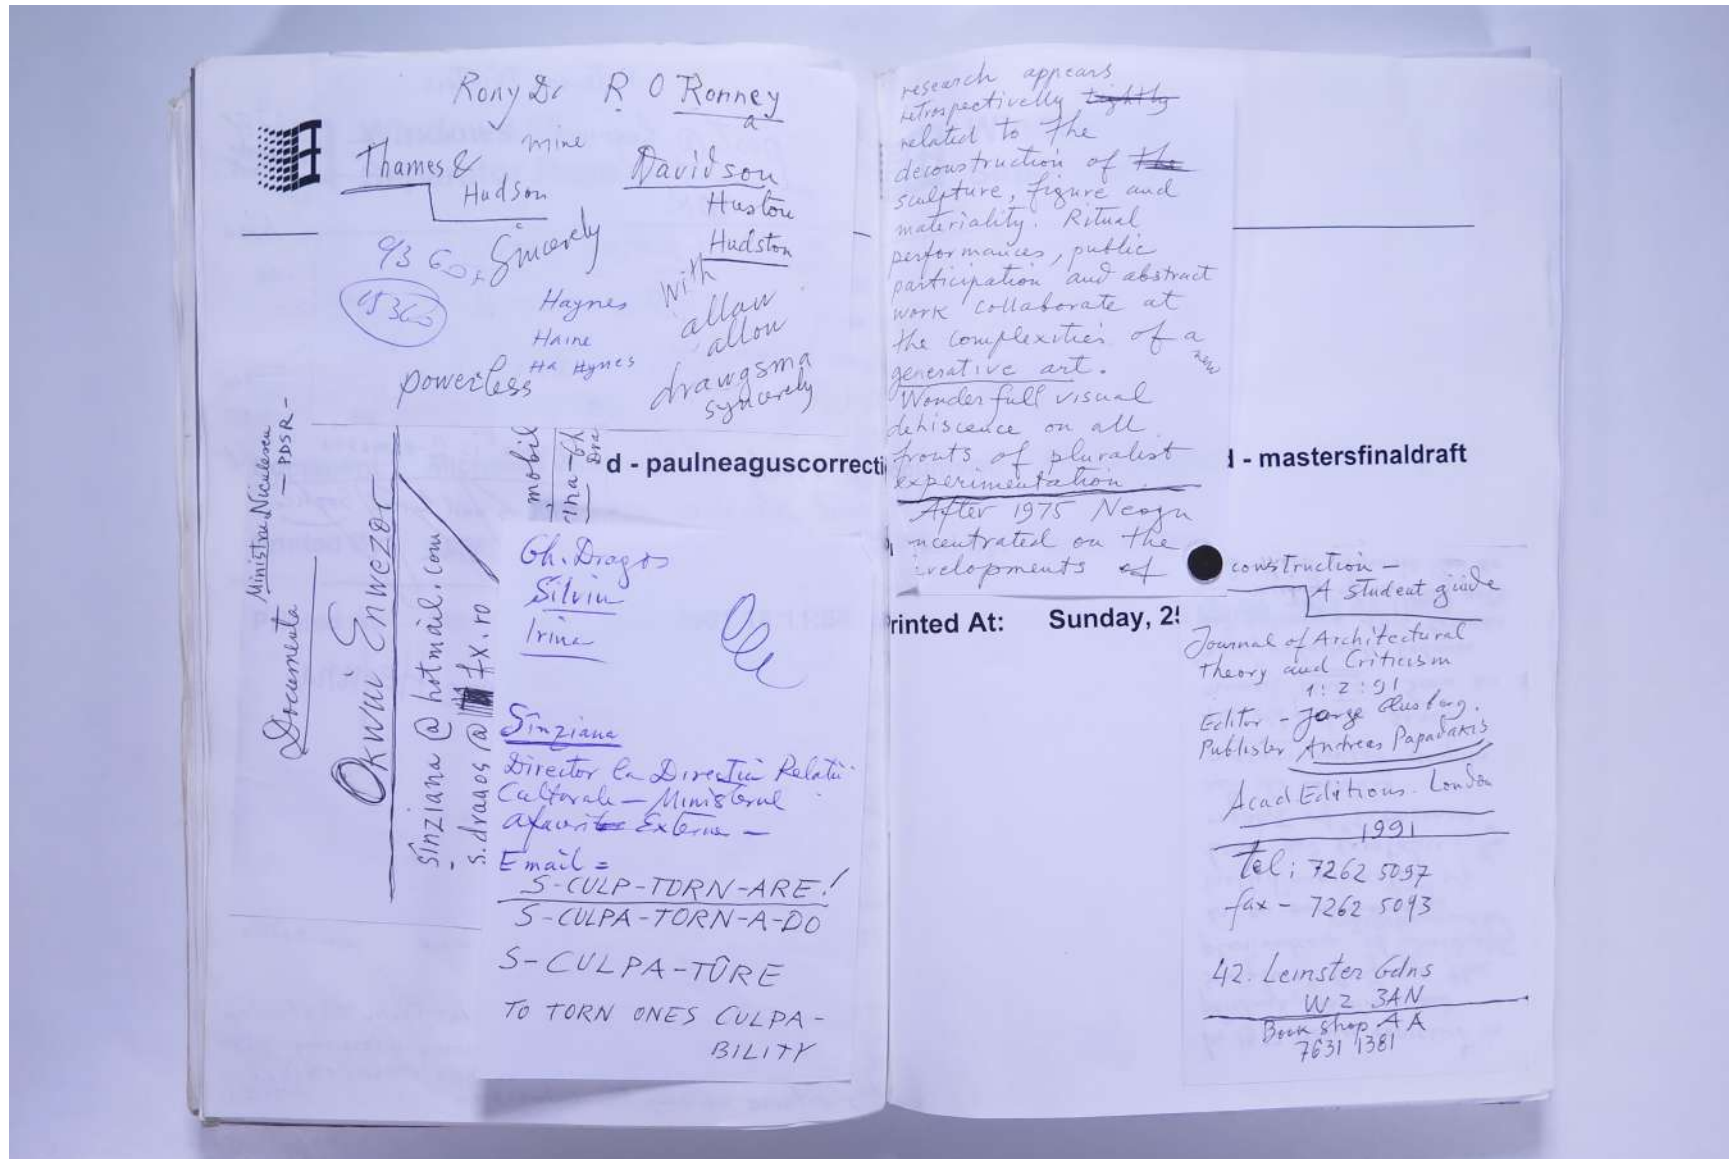 Rony Dr R O Ronney
a
mine
Thames &
Hudson
Davidson
Huston
Hudston
Sincerely
with
allaw
allow
Haynes
Haine
Ha Hynes
powerless
drawgsma
syncerely
Ministru Niculescu
— PDSR -
Documenta
Okwui Enwezor
sinziana @ hotmail.com
fx.ro
mobil
d - paulneaguscorrecti
Gh. Dragos
Silviu
Irina
Sînziana
Director la Direcţia Relatii
Culturale — Ministerul
Externe —
Email =
S-CULP-TORN-ARE!
S-CULPA-TORN-A-DO
S-CULPA-TÛRE
TO TORN ONES CULPA-
BILITY
research appears
retrospectivelly tightly
related to the
deconstruction of the
sculpture, figure and
materiality. Ritual
performances, public
participation and abstract
work collaborate at
the complexities of a
new
generative art.
Wonderfull visual
dehiscence on all
fronts of pluralist
experimentation.
After 1975 Neagu
ncentrated on the
velopments of
d - mastersfinaldraft
rinted At: Sunday, 25
construction —
A student guide
Journal of Architectural
Theory and Criticism
1:2:91
Editor - Jorge Glusberg.
Publisher Andreas Papadakis
Acad Editions. London
1991
tel: 7262 5097
fax - 7262 5093
42. Leinster Gdns
W2 3AN
Book shop AA
7631 1381